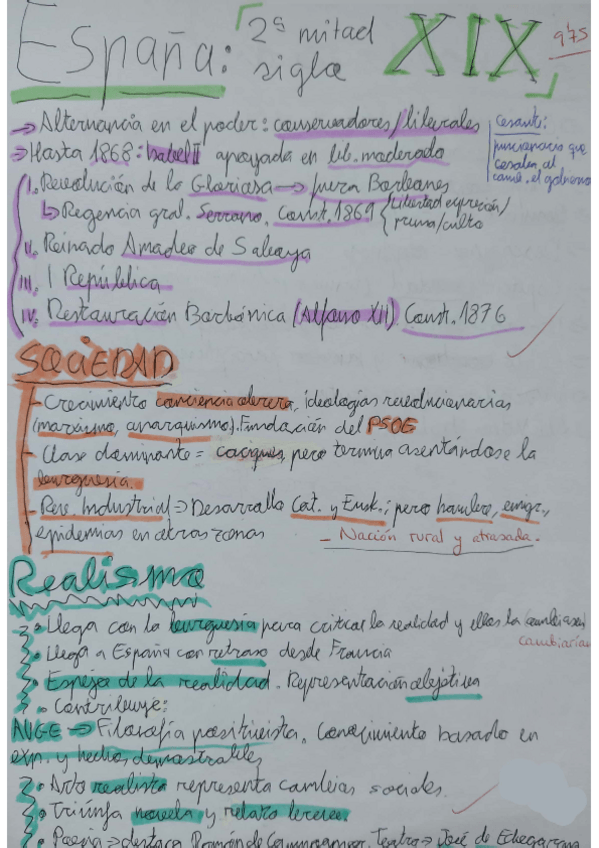 España: 2ª mitad siglo XIX
9'75
→ Alternancia en el poder: conservadores/liberales
Cesante: funcionario que cesaba al camb. el gobierno
→ Hasta 1868: Isabel II apoyada en lib. moderado
I. Revolución de la Gloriosa → fuera Borbones
↳ Regencia gral. Serrano. Const. 1869 { libertad expresión/ prensa/culto
II. Reinado Amadeo de Saboya
III. I República
IV. Restauración Borbónica (Alfonso XII). Const. 1876
SOCIEDAD
- Crecimiento conciencia obrera, ideologías revolucionarias
(marxismo, anarquismo). Fundación del PSOE
- Clase dominante = caciques, pero termina asentándose la
burguesía.
- Rev. Industrial ⇒ Desarrollo Cat. y Eusk.; pero hambre, emigr.,
epidemias en otras zonas
- Nación rural y atrasada.
Realismo
• Llega con la burguesía para criticar la realidad y ellos la (cambiasen)
cambiarían
• Llega a España con retraso desde Francia
• Espejo de la realidad. Representación objetiva
• Contribuye:
AUGE ⇒ Filosofía positivista. Conocimiento basado en
exp. y hechos demostrables
• Arte realista representa cambios sociales.
• Triunfa novela y relato breve
• Poesía ⇒ destaca Ramón de Campoamor. Teatro → José de Echegaray